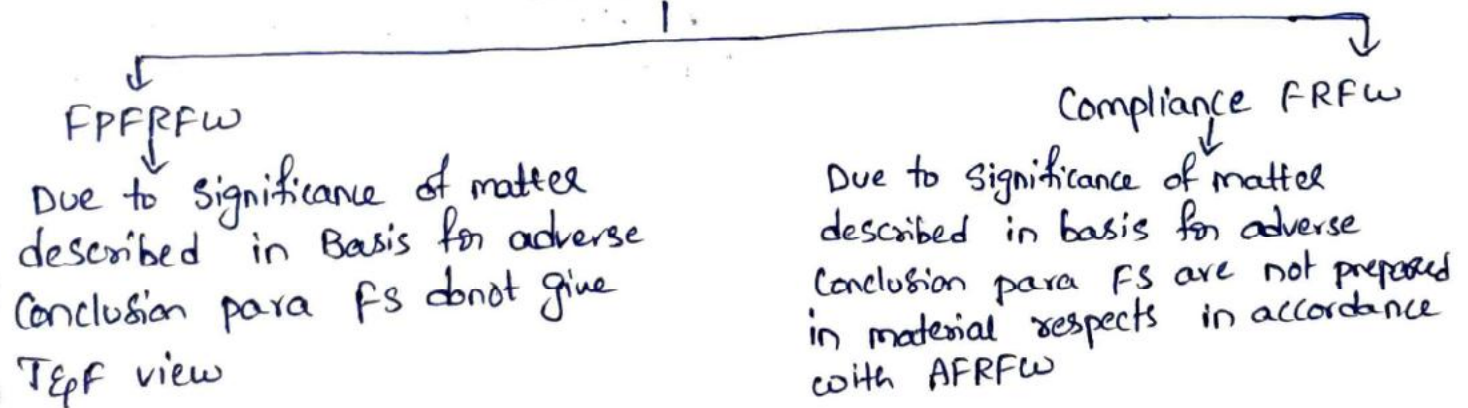 FPFRFW
Due to significance of matter
described in Basis for adverse
Conclusion para FS donot give
T&F view
Compliance FRFW
Due to significance of matter
described in basis for adverse
Conclusion para FS are not prepared
in material respects in accordance
with AFRFW